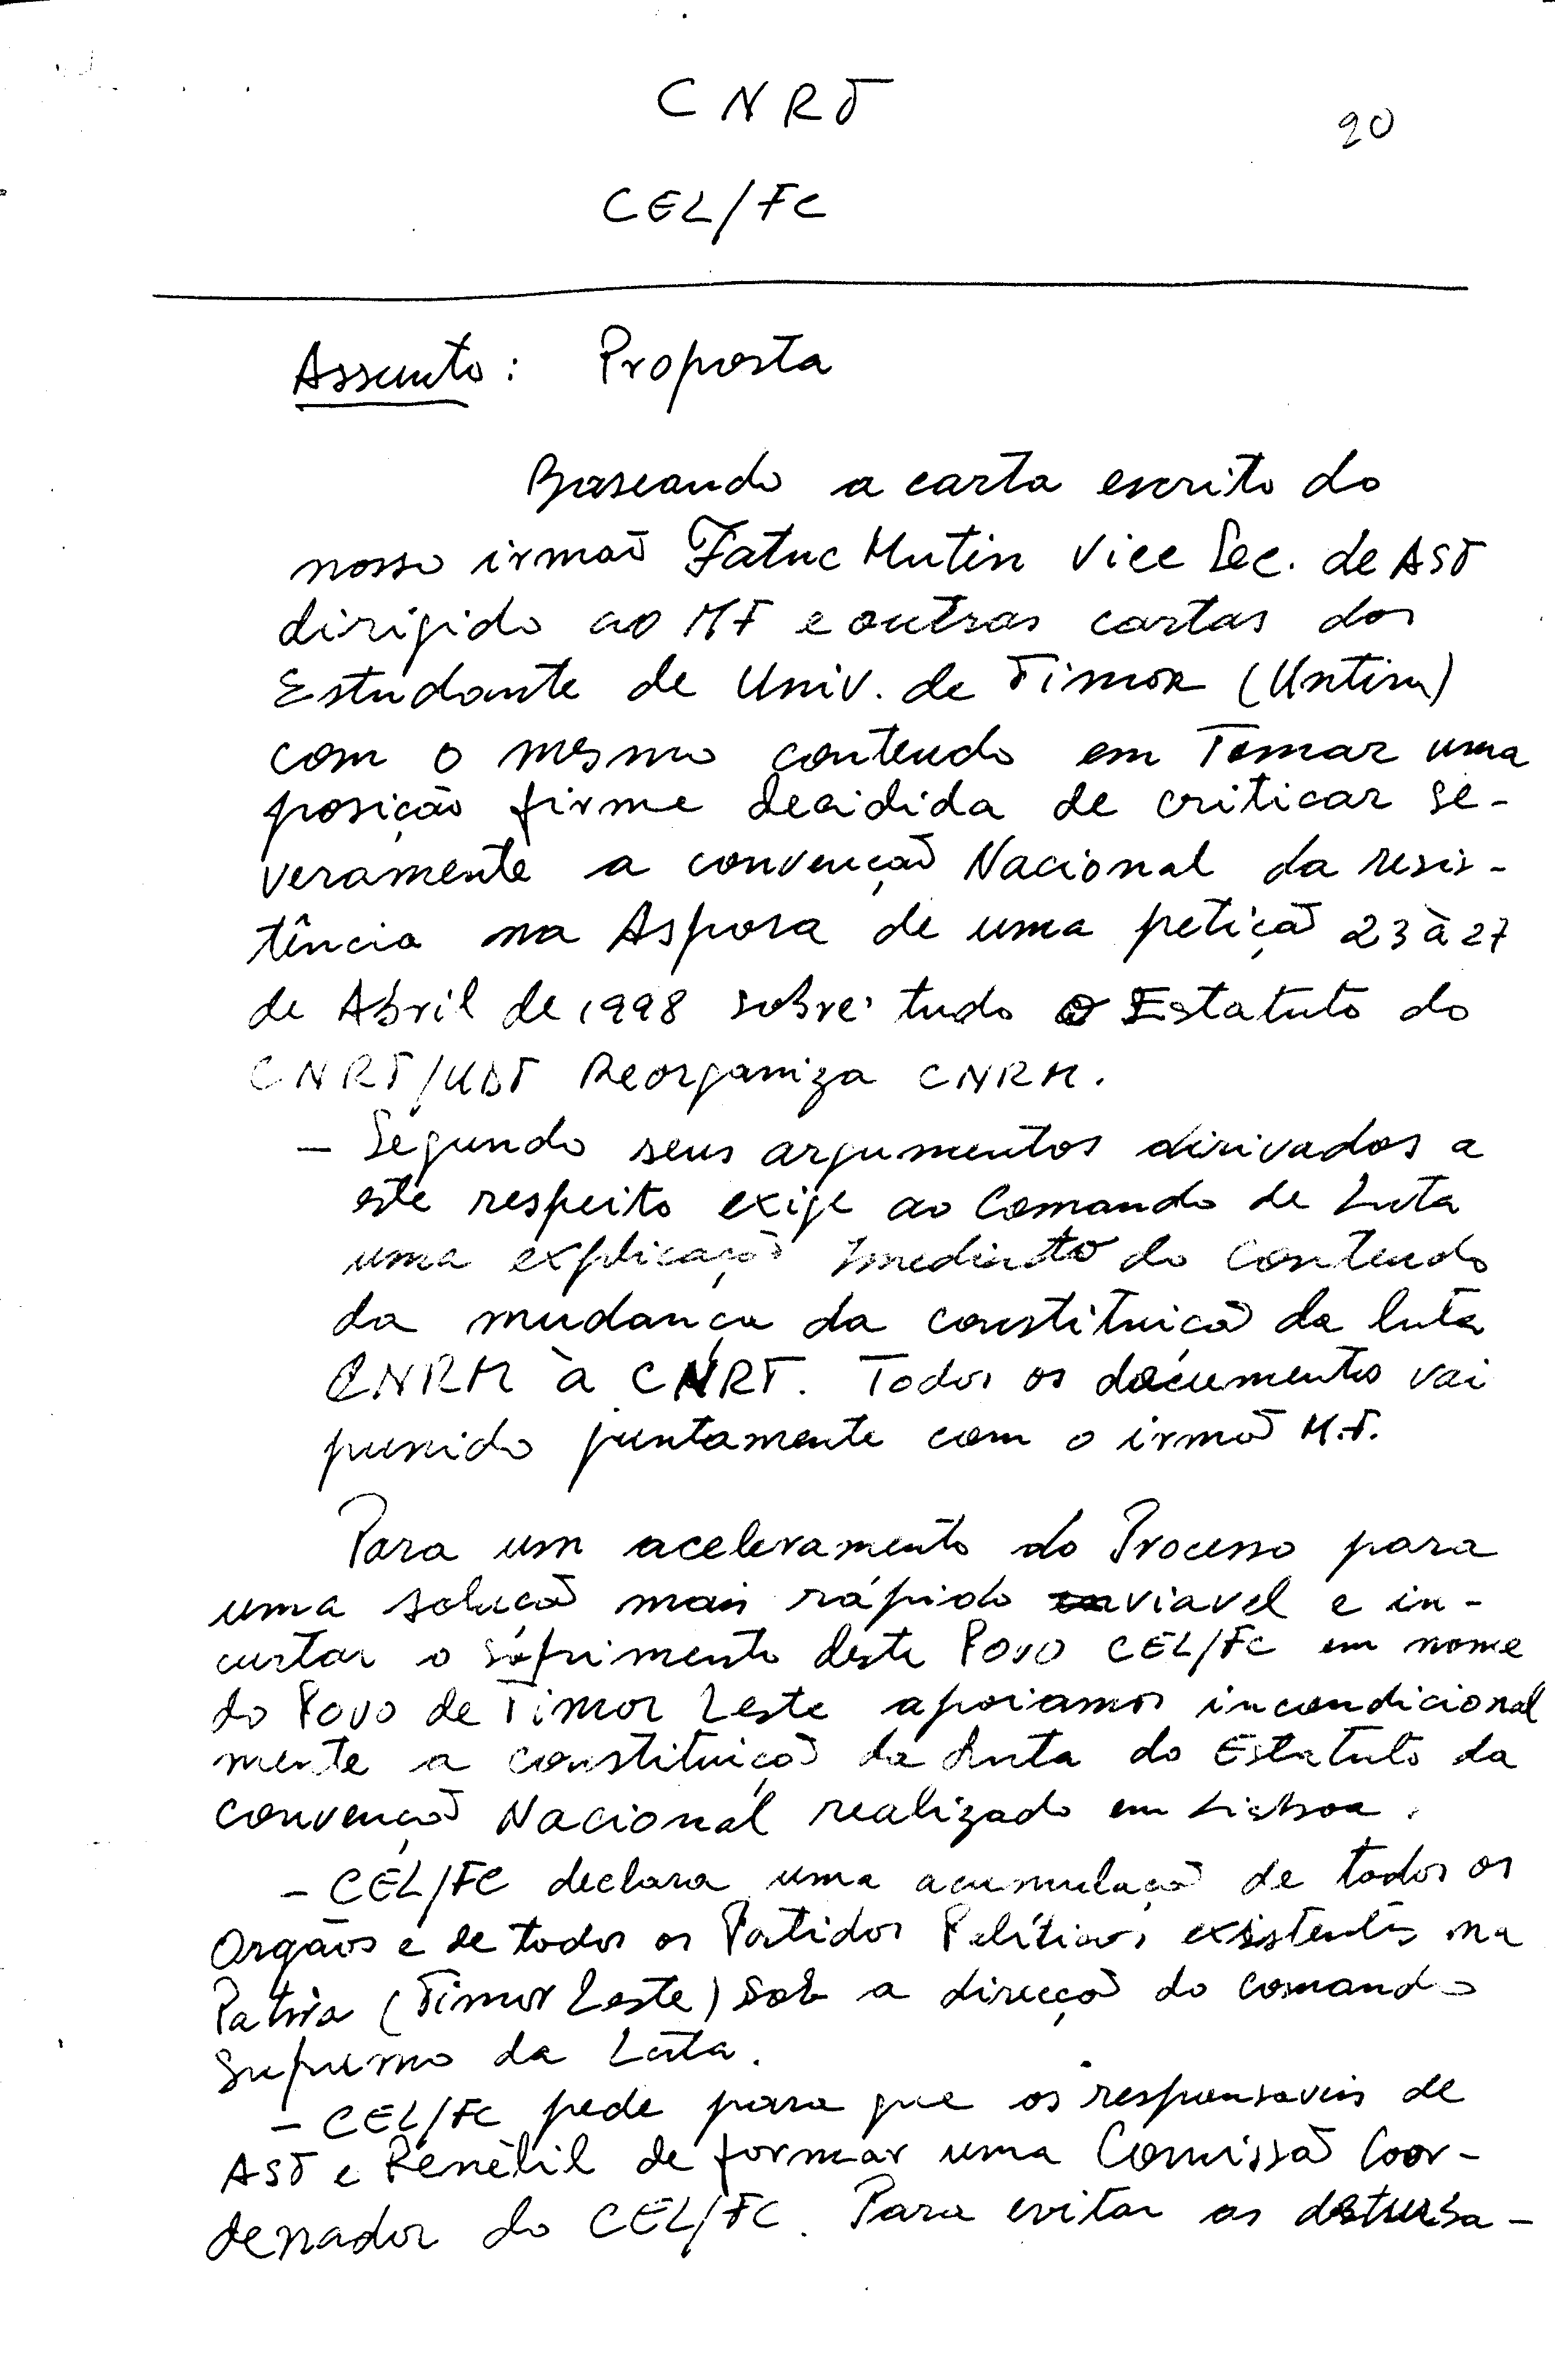 CNRT
20
CEL/FC
Assunto: Proposta
Baseando a carta escrito do
nosso irmão Fatuc Mutin Vice Sec. de AST
dirigido ao MF e outras cartas dos
Estudante de Univ. de Timor (Untim)
com o mesmo conteudo em Tomar uma
posição firme decidida de criticar se-
veramente a convenção Nacional da resis-
tência na Aspora de uma petição 23 à 27
de Abril de 1998 sobre tudo o Estatuto do
CNRT/UDT Reorganiza CNRM.
- Segundo seus argumentos dirivados a
este respeito exige ao Comando de Luta
uma explicação Imediato do Conteudo
da mudança da constituição da luta
CNRM à CNRT. Todos os documentos vai
punido juntamente com o irmão M.F.
Para um aceleramento do Processo para
uma solução mais rápido viavel e in-
curtar o sofrimento deste Povo CEL/FC em nome
do Povo de Timor Leste apoiamos incondicional
mente a constituição da Luta do Estatuto da
convenção Nacional realizado em Lisboa.
- CEL/FC declara uma acumulação de todos os
Orgãos e de todos os Partidos Politicos existentes na
Patria (Timor Leste) Sob a direcção do comando
Supremo da Luta.
- CEL/FC pede para que os responsaveis de
AST e Renetil de formar uma Comissão Coor-
denador do CEL/FC. Para evitar as